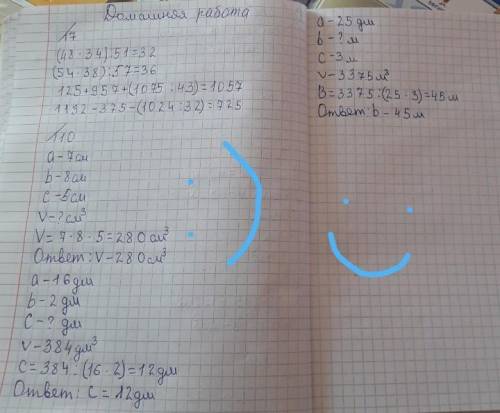 Домашняя работа
17
(48·34):51=32
(54·38):57=36
125+957+(1075:43)=1057
1132-375-(1024:32)=725
110
a-7см
b-8см
c-5см
V-?см³
V=7·8·5=280см³
Ответ: V-280см³
a-16дм
b-2дм
C-?дм
V-384дм³
C=384:(16·2)=12дм
Ответ: C=12дм
a-25дм
b-?м
C-3м
V-3375м³
B=3375:(25·3)=45м
Ответ: b-45м